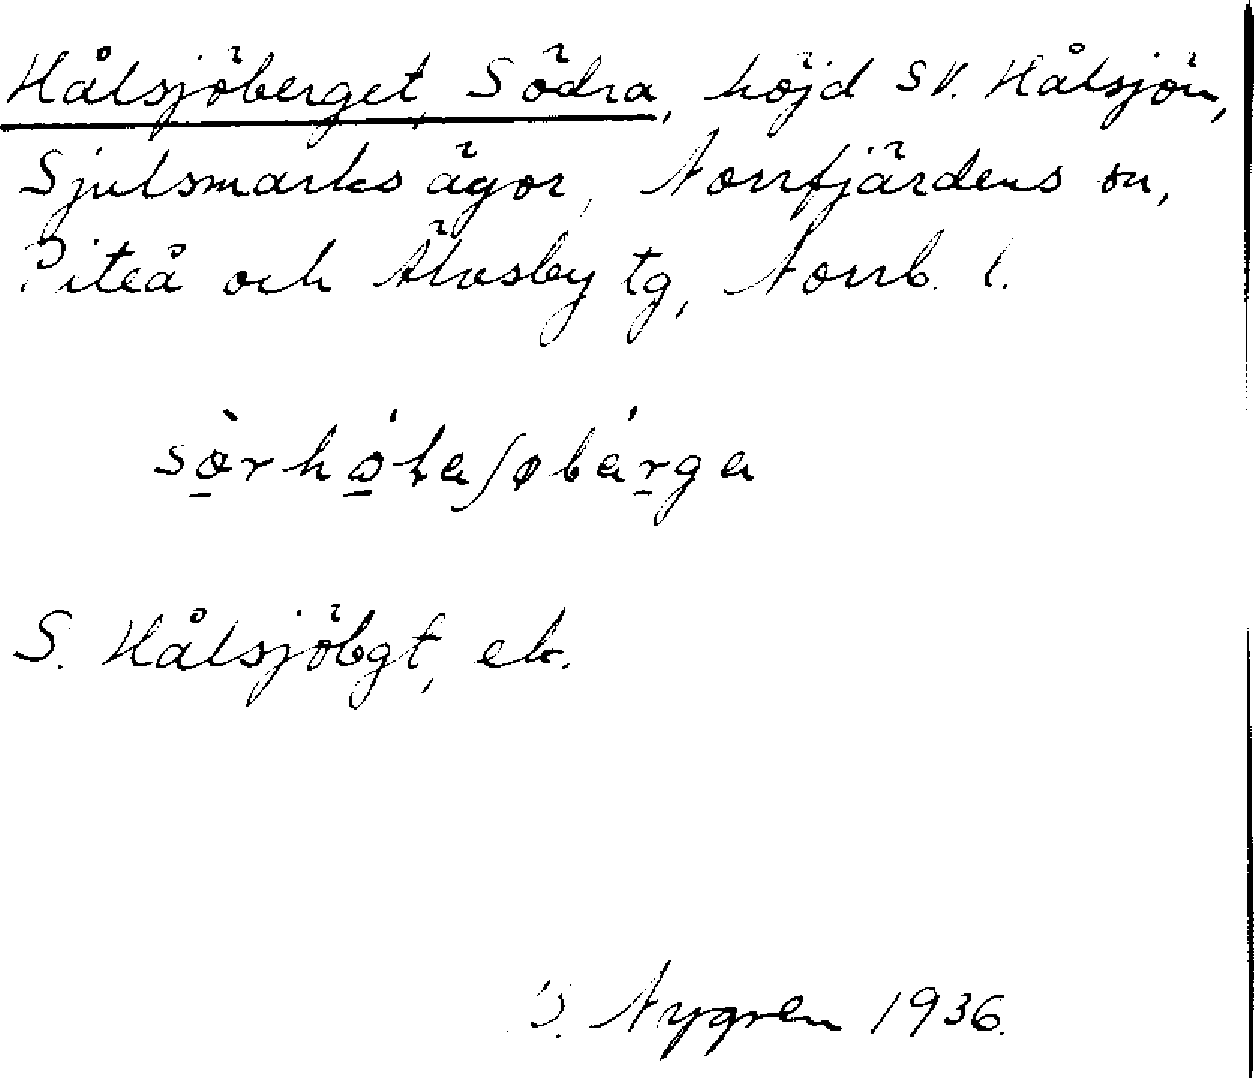 Hålsjöberget, Södra, höjd SV. Hålsjön,
Sjulsmarks ägor, Norrfjärdens sn,
Piteå och Älvsby tg, Norrb. l.
S. Hålsjöbgt, ek.
Nygren 1936.